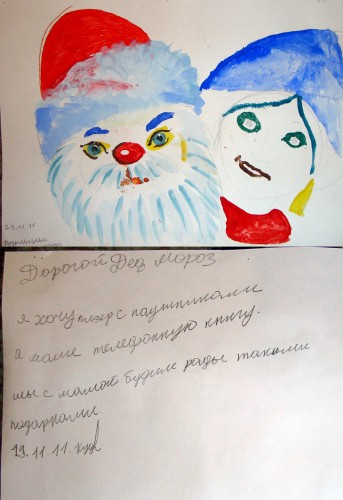 29.11.11
Дорогой Дед Мороз
я хочу плэер с наушниками
а маме телефонную книгу.
мы с мамой будим рады такими
подарками
19.11.11.